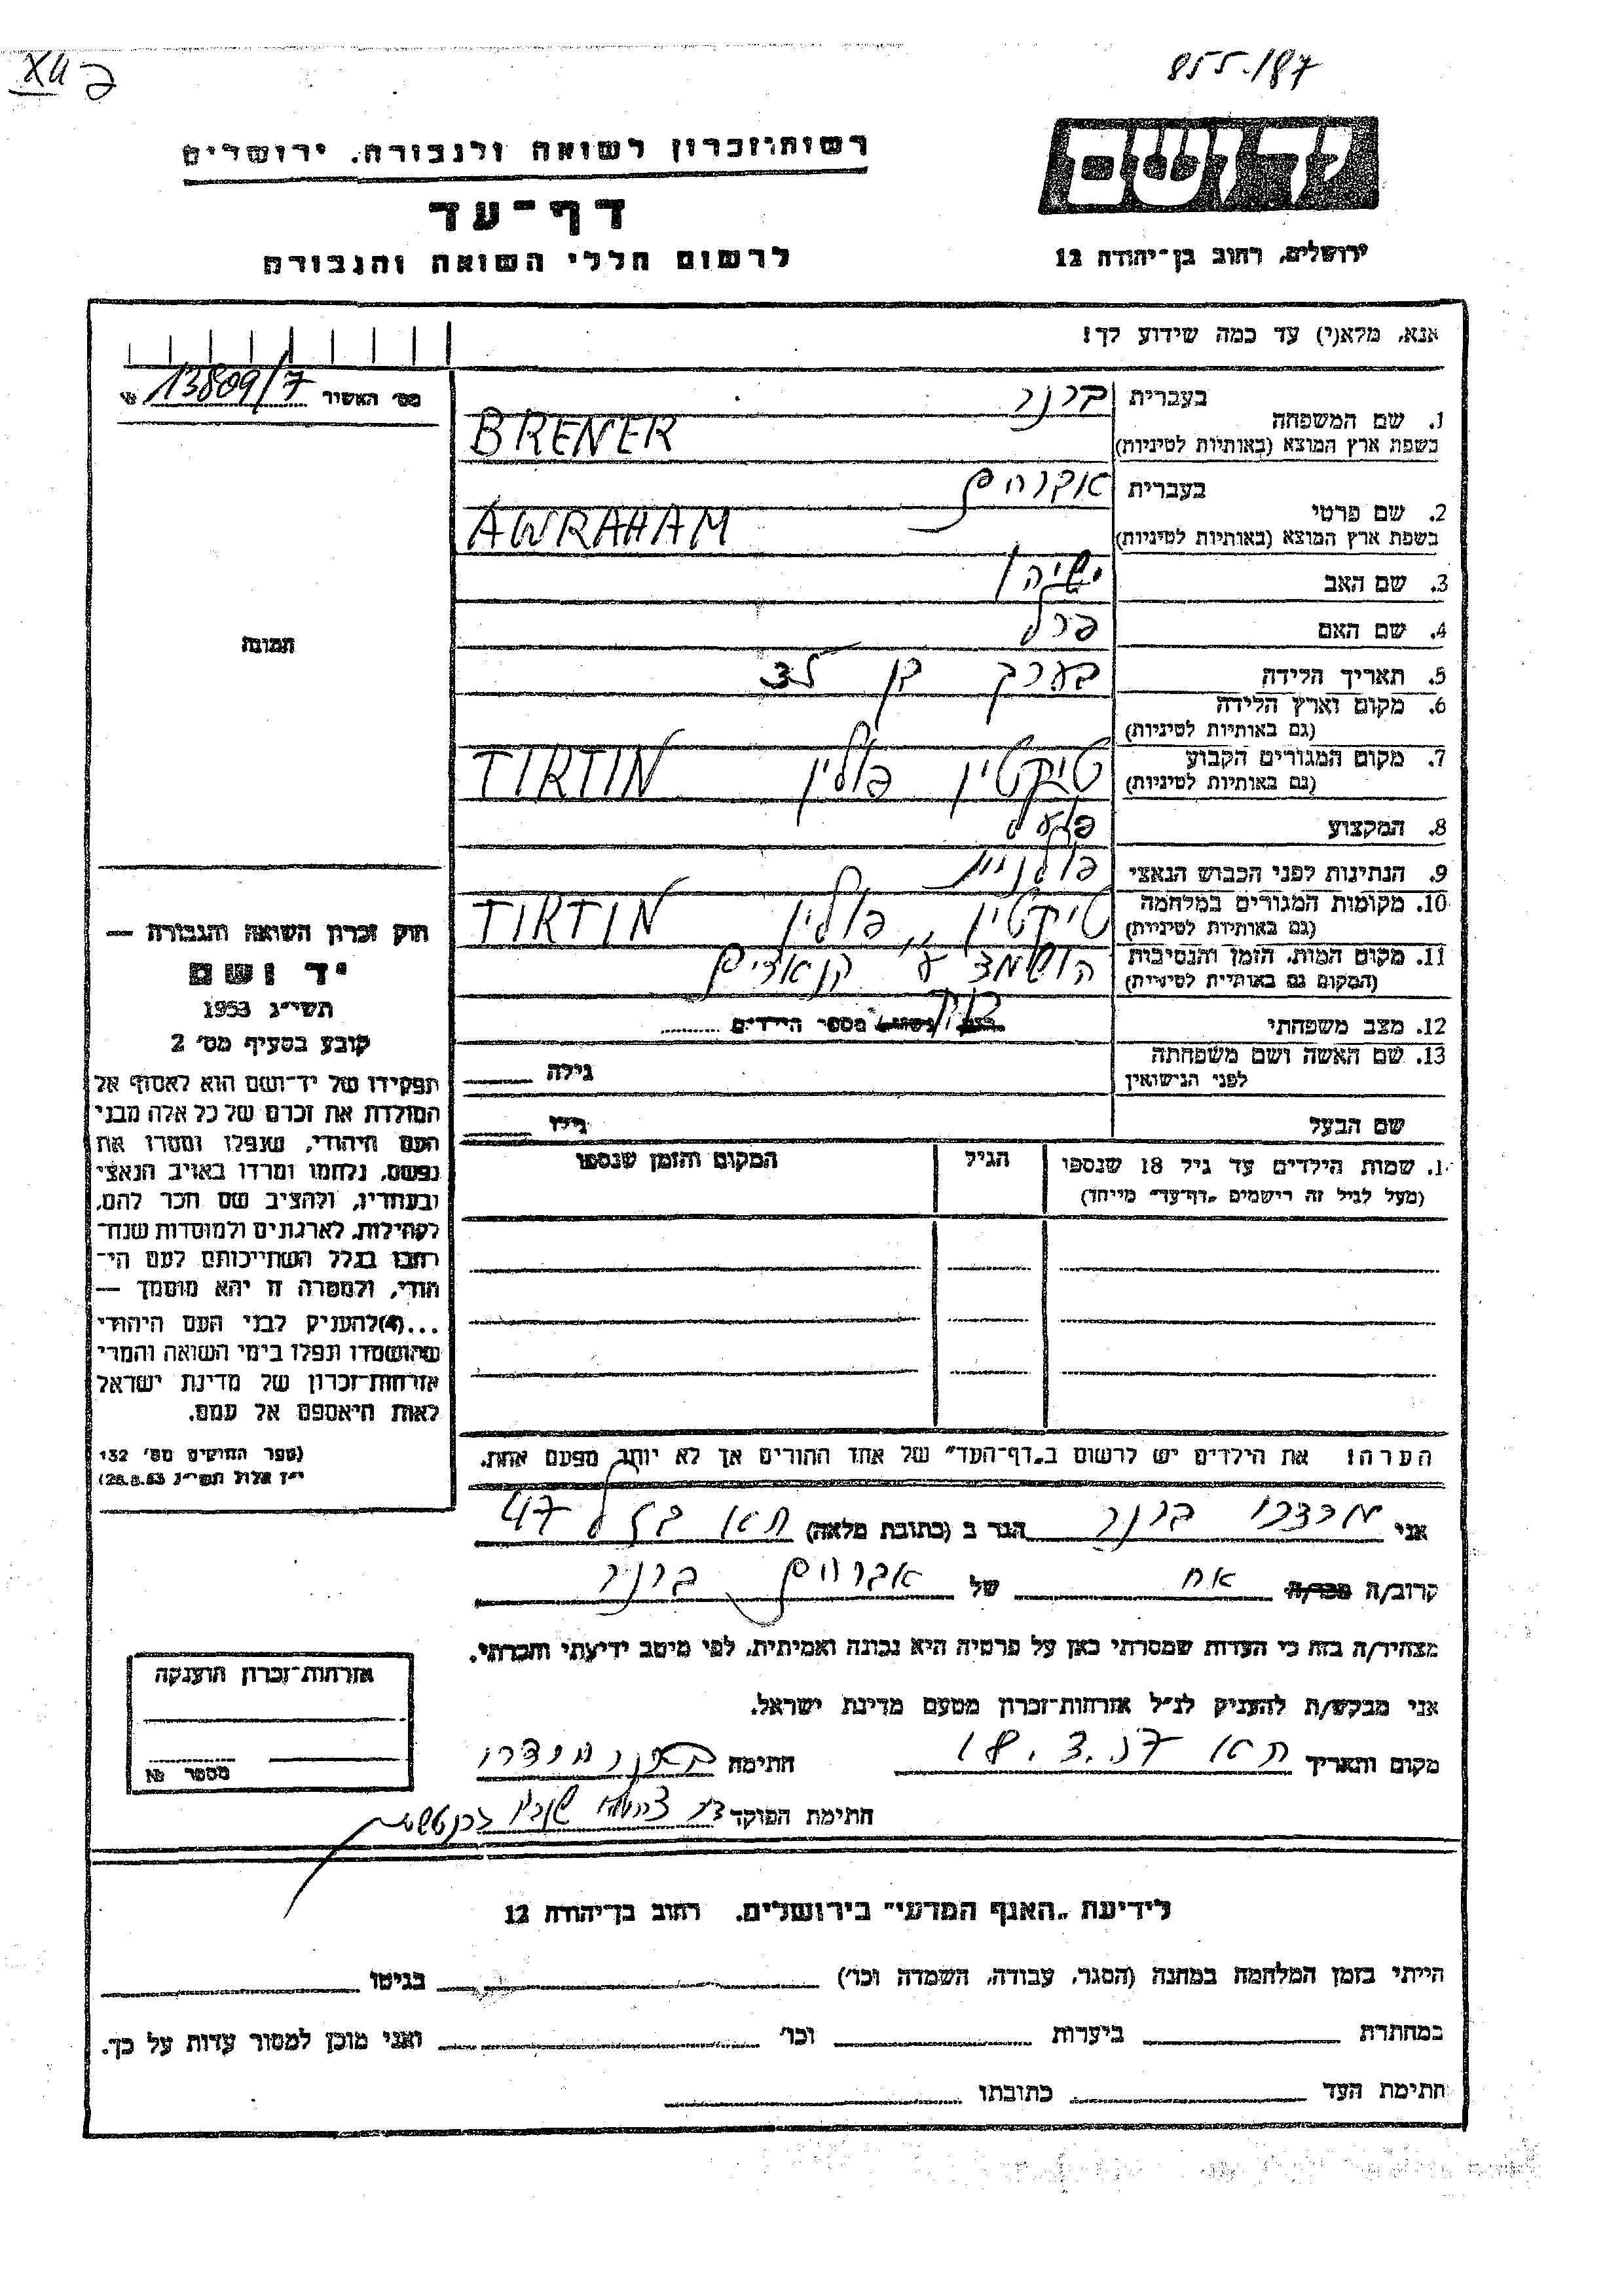 855/187
רשות־זכרון לשואה ולגבורה, ירושלים
דף־עד
לרשום חללי השואה והגבורה
יד ושם
ירושלים, רחוב בן־יהודה 12
אנא, מלא(י) עד כמה שידוע לך!
מס׳ האשיר 13809/7
1. שם המשפחה
בעברית ברנר
בשפת ארץ המוצא (באותיות לטיניות) BRENER
2. שם פרטי
בעברית אברהם
בשפת ארץ המוצא (באותיות לטיניות) AWRAHAM
3. שם האב ישיהו
4. שם האם פרל
5. תאריך הלידה בערך בן
6. מקום וארץ הלידה
(גם באותיות לטיניות)
7. מקום המגורים הקבוע טיקטין פולין TIKTIN
(גם באותיות לטיניות)
8. המקצוע פועל
9. הנתינות לפני הכבוש הנאצי פולנית
10. מקומות המגורים במלחמה טיקטין פולין TIKTIN
(גם באותיות לטיניות)
11. מקום המות, הזמן והנסיבות הושמד ע״י הנאצים
(המקום גם באותיות לטיניות)
12. מצב משפחתי רווק מספר הילדים
13. שם האשה ושם משפחתה גילה
לפני הנישואין
שם הבעל גילו
תמונה
1. שמות הילדים עד גיל 18 שנספו
(מעל לגיל זה רישמים „דף־עד” מייחד)
הגיל
המקום והזמן שנספו
חוק זכרון השואה והגבורה —
יד ושם
תשי״ג 1953
קובע בסעיף מס׳ 2
תפקידו של יד־ושם הוא לאסוף אל
המולדת את זכרם של כל אלה מבני
העם היהודי, שנפלו ומסרו את
נפשם, נלחמו ומרדו באויב הנאצי
ובעוזריו, ולהציב שם וזכר להם,
לקהילות, לארגונים ולמוסדות שנח־
רבו בגלל השתייכותם לעם הי־
הודי, ולמטרה זו יהא מוסמך —
...(4)להעניק לבני העם היהודי
שהושמדו ונפלו בימי השואה והמרי
אזרחות־זכרון של מדינת ישראל
לאות היאספם אל עמם.
(ספר החוקים מס׳ 132
י״ז אלול תשי״ג 28.8.53)
הערה! את הילדים יש לרשום ב„דף־העד” של אחד ההורים אך לא יותר מפעם אחת.
אני מרדכי ברנר הגר ב (כתובת מלאה) ת״א 47
קרוב/ה מכר/ה אח של אברהם ברנר
מצהיר/ה בזה כי העדות שמסרתי כאן על פרטיה היא נכונה ואמיתית, לפי מיטב ידיעתי והכרתי.
אני מבקש/ת להעניק לנ״ל אזרחות־זכרון מטעם מדינת ישראל.
מקום ותאריך ת״א חתימה ברנר מרדכי
חתימת הפוקד
אזרחות־זכרון הוענקה
מספר №
לידיעת „האגף המדעי” בירושלים, רחוב בן־יהודה 12
הייתי בזמן המלחמה במחנה (הסגר, עבודה, השמדה וכו׳) בגיטו
במחתרת ביערות וכו׳ ואני מוכן למסור עדות על כך.
חתימת העד כתובתו